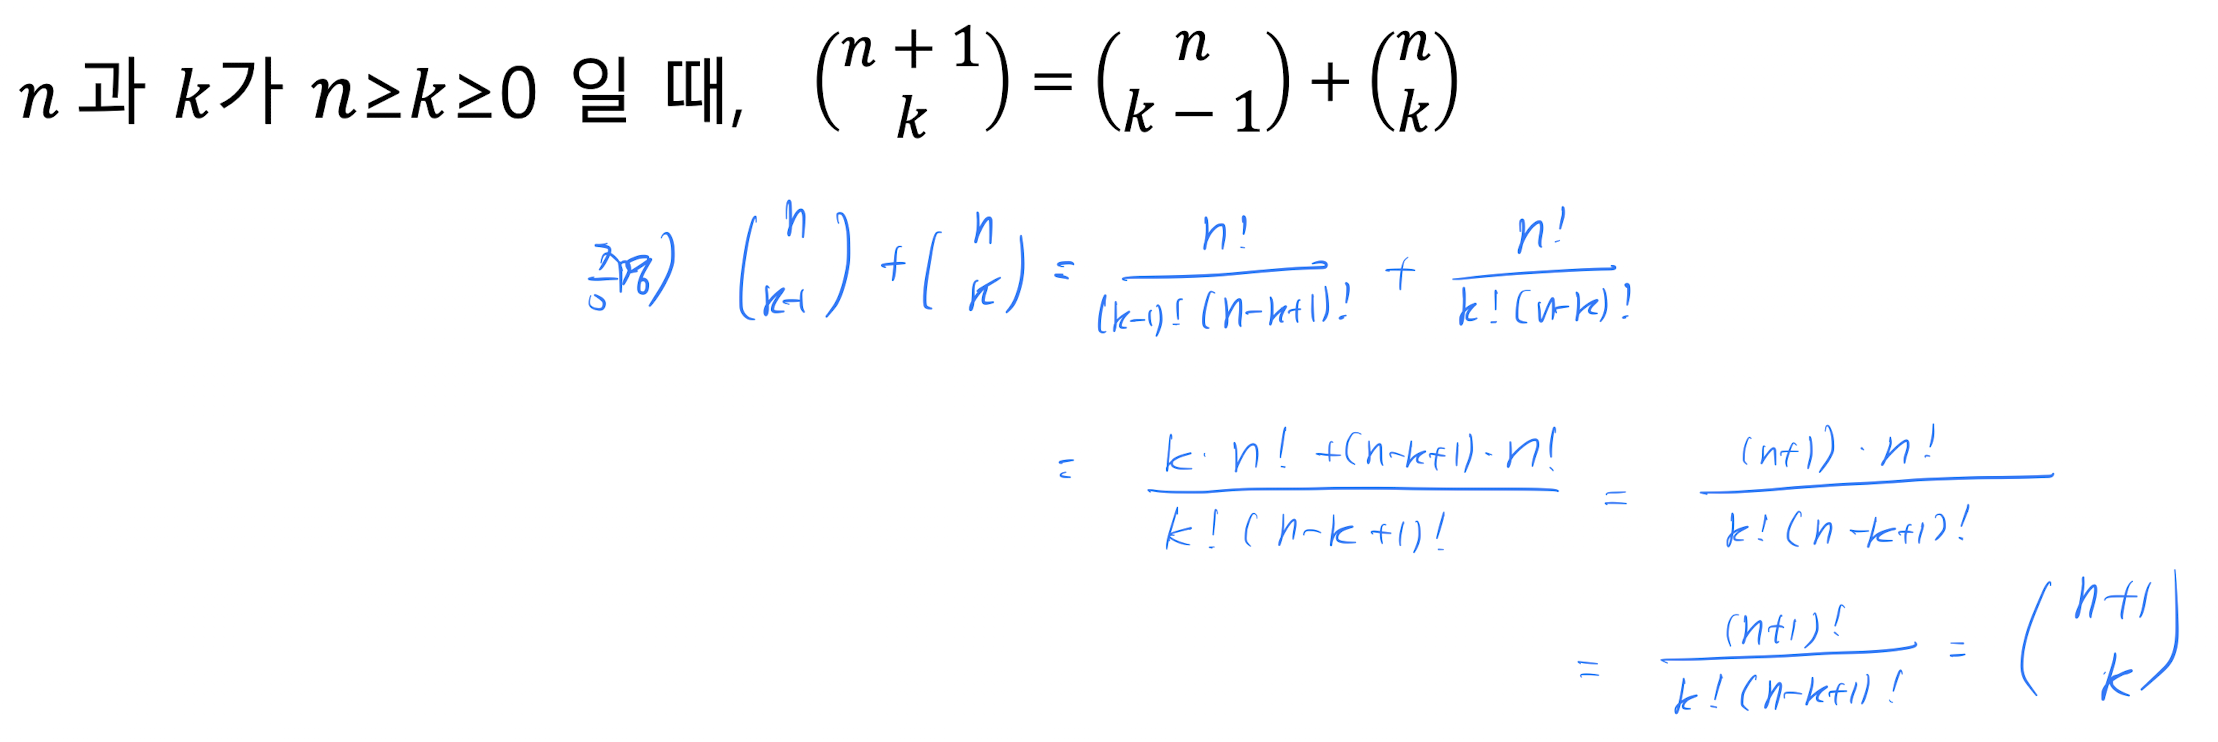 n 과 k가 n≥k≥0 일 때, \binom{n+1}{k} = \binom{n}{k-1} + \binom{n}{k}
증명) \binom{n}{k-1} + \binom{n}{k} = \frac{n!}{(k-1)!(n-k+1)!} + \frac{n!}{k!(n-k)!}
= \frac{k·n!+(n-k+1)·n!}{k!(n-k+1)!} = \frac{(n+1)·n!}{k!(n-k+1)!}
= \frac{(n+1)!}{k!(n-k+1)!} = \binom{n+1}{k}